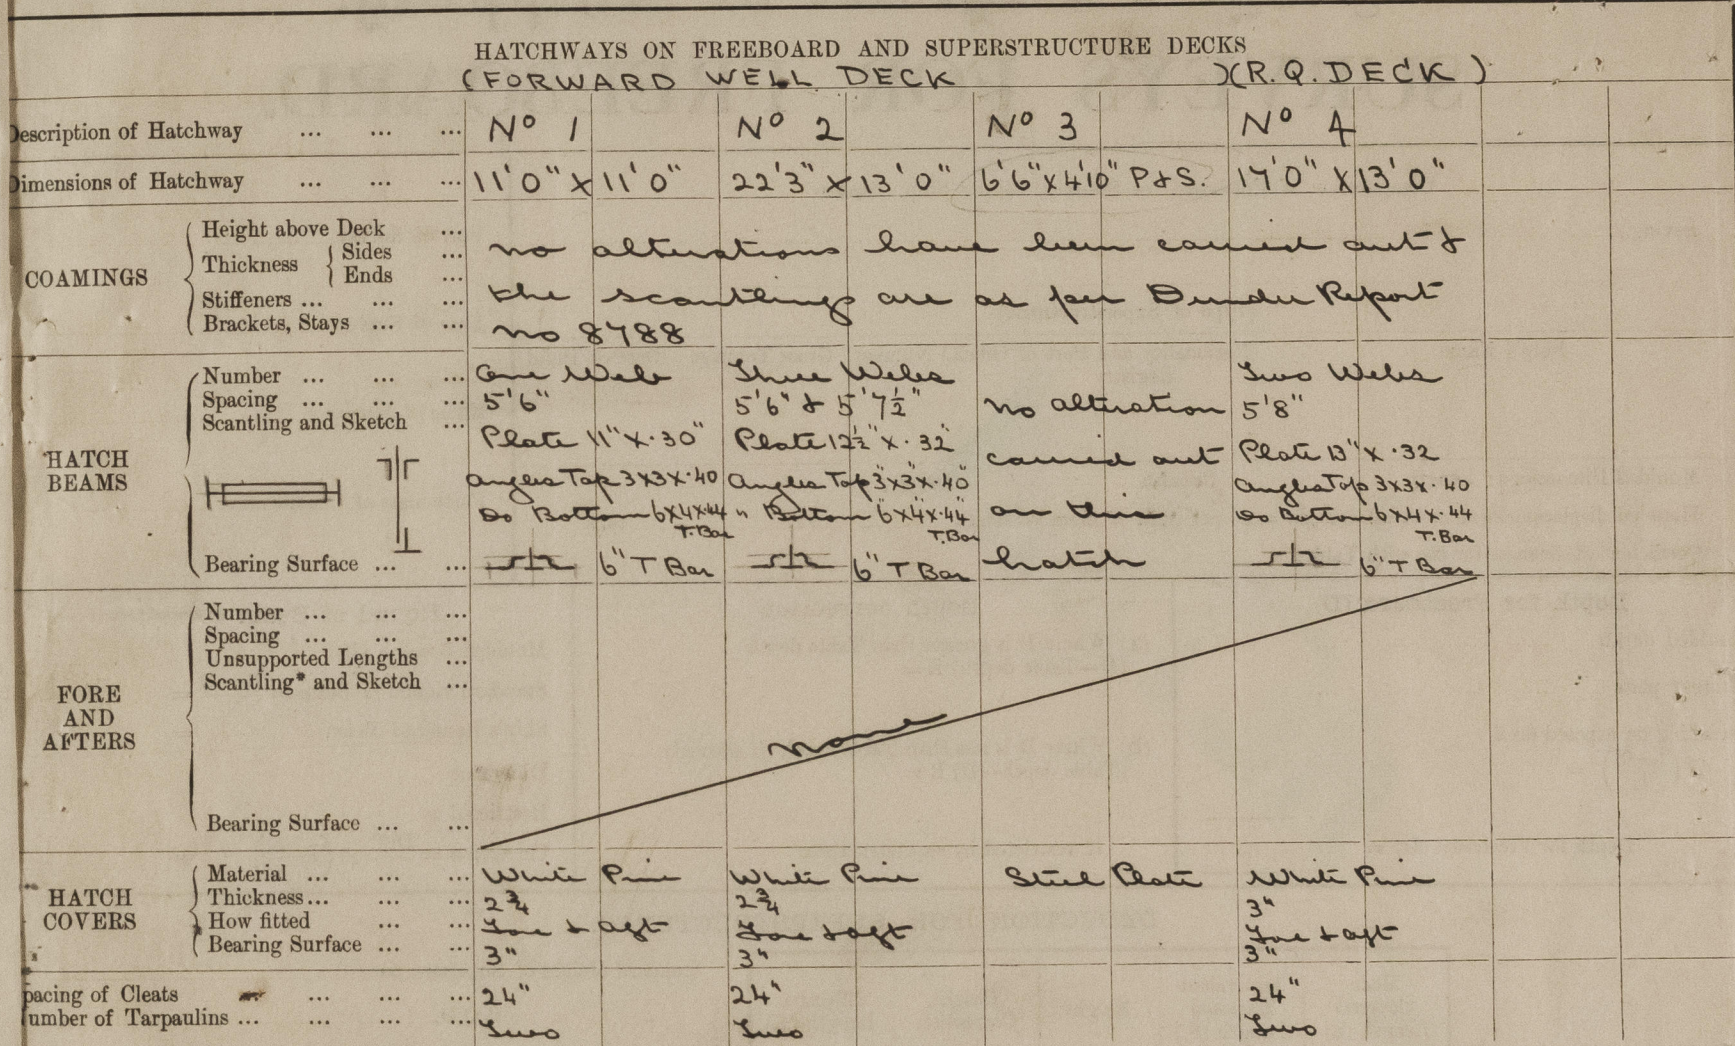 HATCHWAYS ON FREEBOARD AND SUPERSTRUCTURE DECKS
(FORWARD WELL DECK )(R.Q. DECK )
Description of Hatchway ... ... ... No 1 No 2 No 3 No 4
Dimensions of Hatchway ... ... ... 11'0" x 11'0" 22'3" x 13'0" 6'6" x 4'10" P & S. 17'0" x 13'0"
COAMINGS
Height above Deck ...
Thickness { Sides ...
Ends ...
Stiffeners ... ... ...
Brackets, Stays ... ...
no alterations have been carried out &
the scantlings are as per Dundee Report
no 8788
HATCH BEAMS
Number ... ... ... One Web Three Webs Two Webs
Spacing ... ... ... 5'6" 5'6" & 5'7½" no alteration 5'8"
Scantling and Sketch ... Plate 11" x .30" Plate 12½" x .32" carried out Plate 13" x .32
Angles Top 3x3x.40 Angles Top 3"x3"x.40" Angles Top 3x3x.40
Do Bottom 6x4x.44 " Bottom 6"x4"x.44" on this Do Bottom 6x4x.44
T. Bar T. Bar T. Bar
Bearing Surface ... ... 6" T Bar 6" T Bar hatch 6" T Bar
FORE AND AFTERS
Number ... ... ...
Spacing ... ... ...
Unsupported Lengths ...
Scantling* and Sketch ...
none
Bearing Surface ... ...
HATCH COVERS
Material ... ... ... White Pine White Pine Steel Plate White Pine
Thickness ... ... ... 2¾ 2¾ 3"
How fitted ... ... Fore & aft Fore & aft Fore & aft
Bearing Surface ... ... 3" 3" 3"
pacing of Cleats ... ... ... 24" 24" 24"
umber of Tarpaulins ... ... ... ... Two Two Two